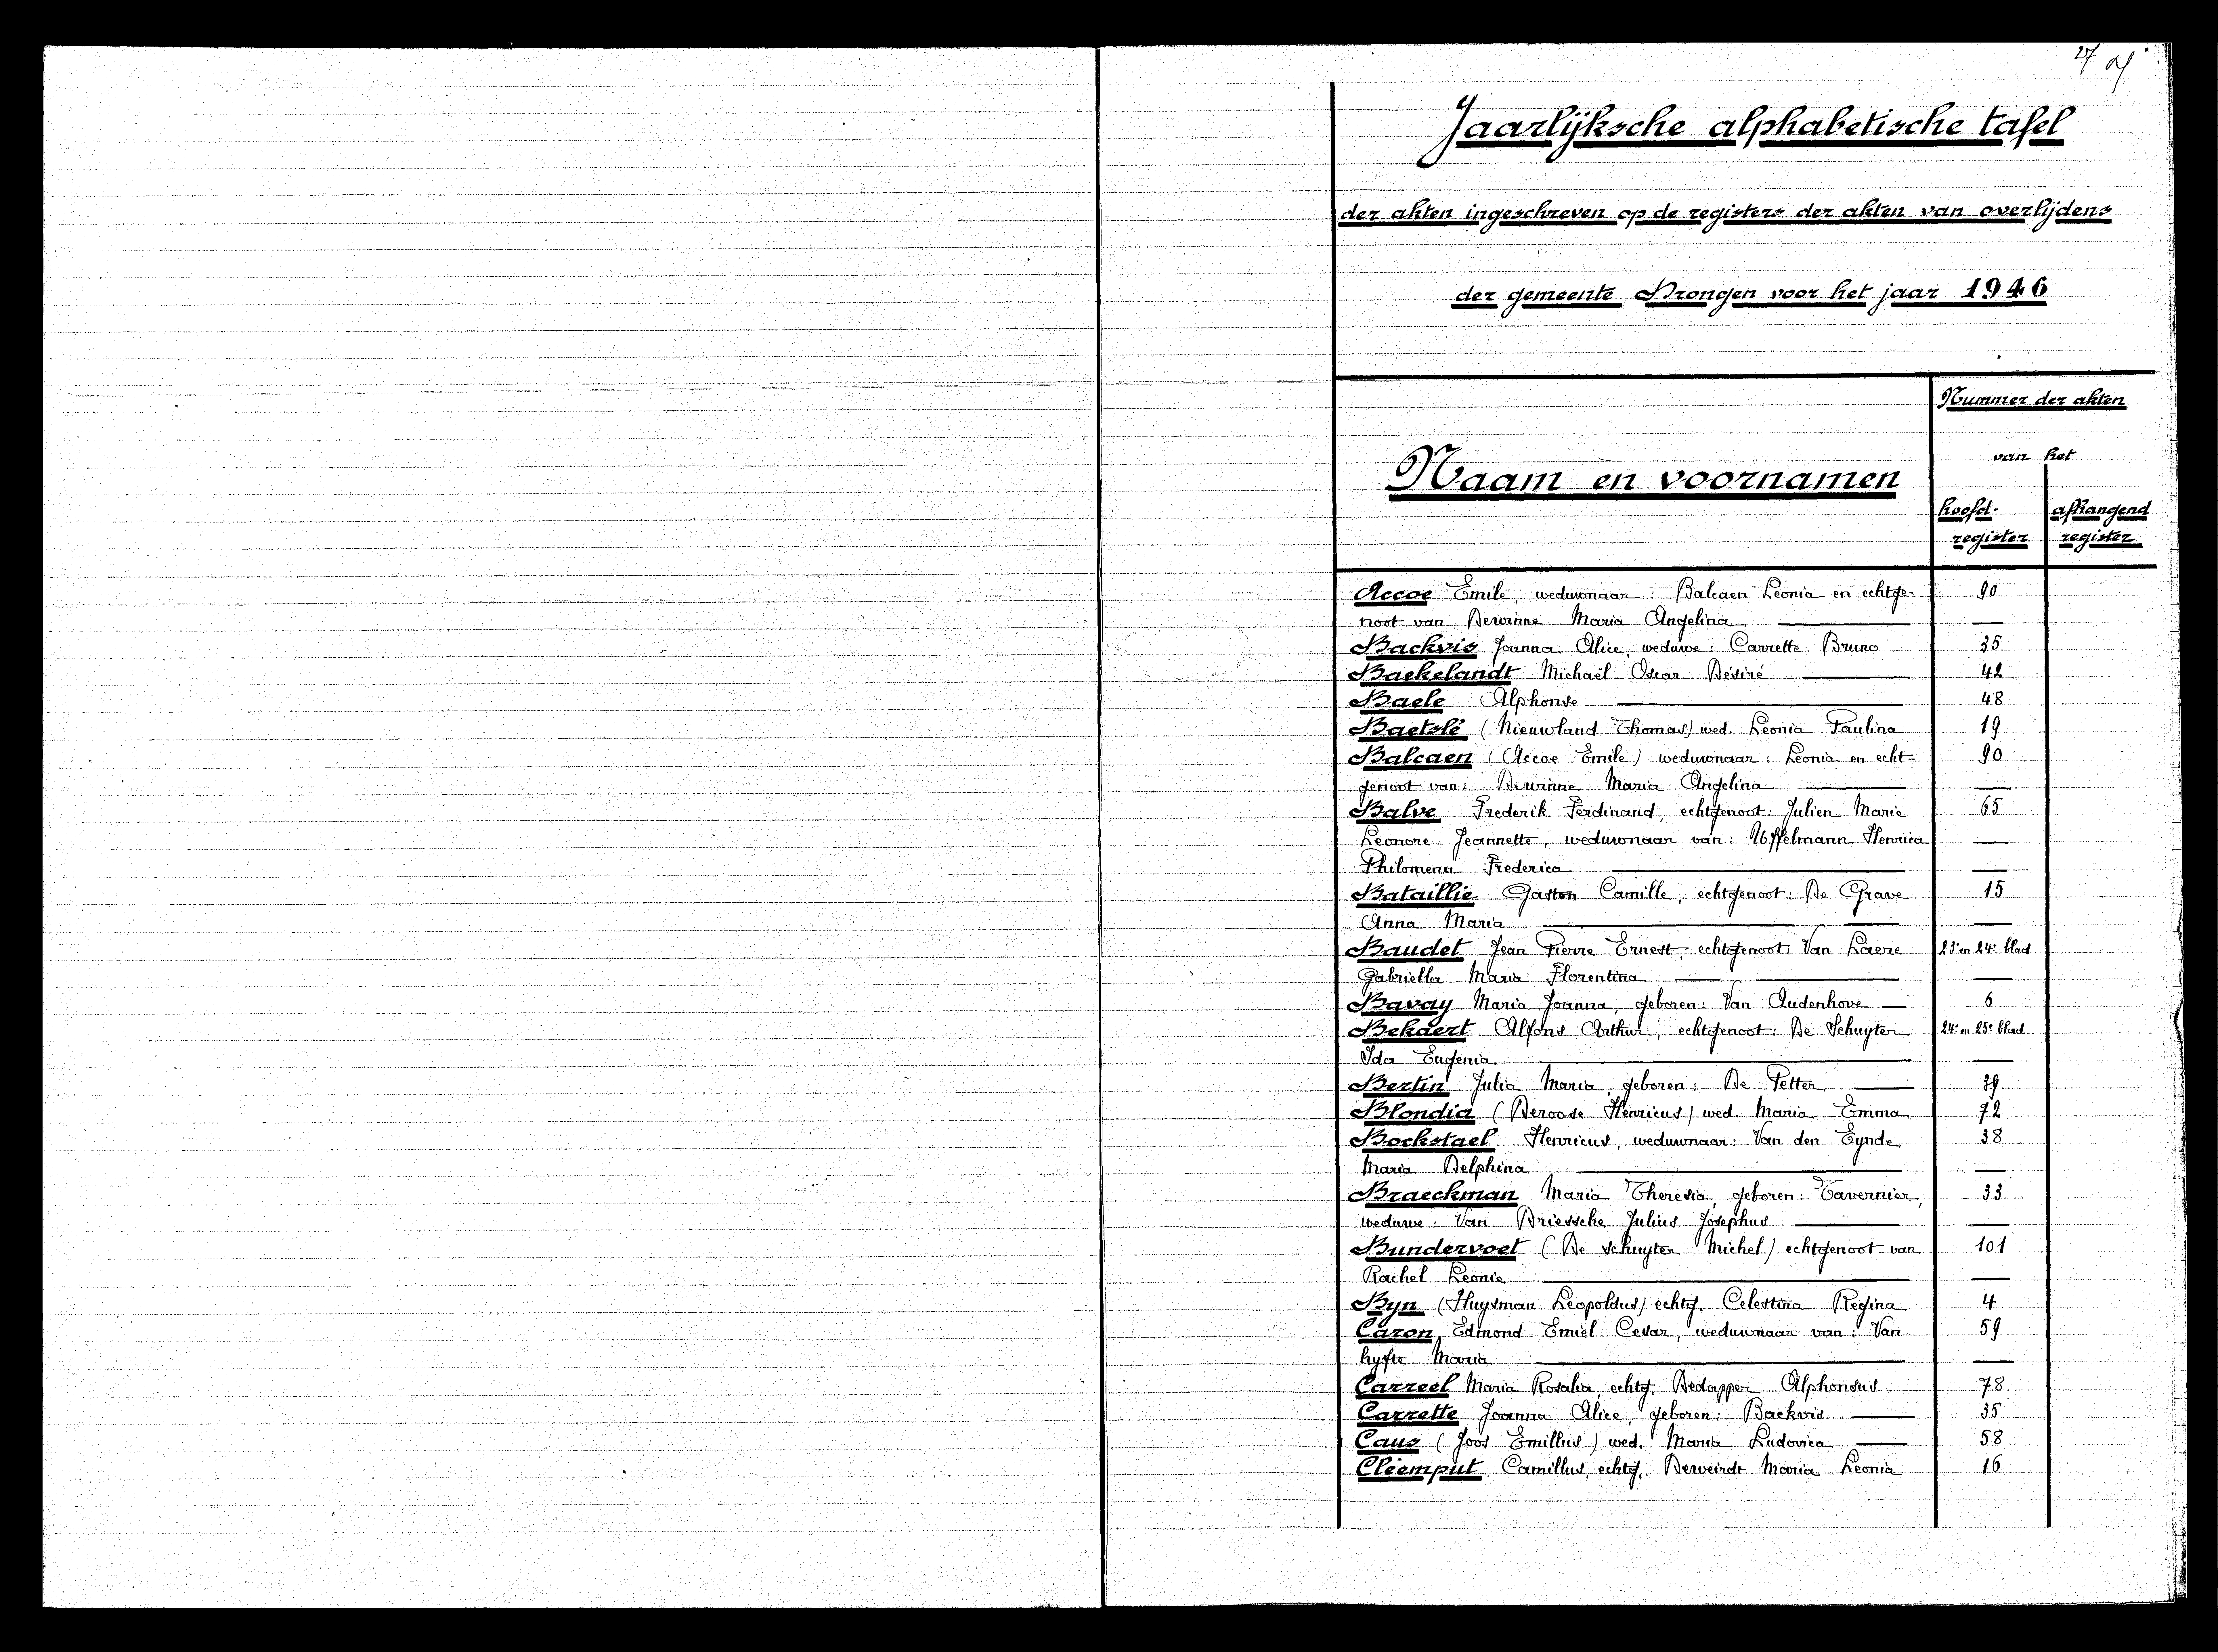 27
Jaarlijksche alphabetische tafel
der akten ingeschreven op de registers der akten van overlijdens
der gemeente Drongen voor het jaar 1946
Nummer der akten
van het
Naam en voornamen
hoofd- afhangend
register register
Accoe Emile, weduwnaar: Balcaen Leonia en echtge- 90
noot van Dewinne Maria Angelina —
Backvis Joanna Alice, weduwe: Carrette Bruno 35
Baekelandt Michaël Oscar Désiré 42
Baele Alphonse 48
Baetslé (Nieuwland Thomas) wed. Leonia Paulina 19
Balcaen (Accoe Emile) weduwnaar: Leonia en echt- 90
genoot van: Dewinne Maria Angelina —
Balve Frederik Ferdinand, echtgenoot: Julien Marie 65
Leonore Jeannette, weduwnaar van: Uffelmann Henrica —
Philomena Frederica —
Bataillie Gaston Camille, echtgenoot: De Grave 15
Anna Maria —
Baudet Jean Pierre Ernest, echtgenoot: Van Laere 23e en 24e blad
Gabriella Maria Florentina —
Bavay Maria Joanna, geboren: Van Audenhove 6
Bekaert Alfons Arthur, echtgenoot: De Schuyter 24e en 25e blad
Ida Eugenia —
Bertin Julia Maria, geboren: De Petter 39
Blondia (Deroose Henricus) wed. Maria Emma 72
Bockstael Henricus, weduwnaar: Van den Eynde 38
Maria Delphina —
Braeckman Maria Theresia, geboren: Tavernier, 33
weduwe: Van Driessche Julius Josephus —
Bundervoet (De Schuyter Michel) echtgenoot van 101
Rachel Leonie —
Byn (Huysman Leopoldus) echtg. Celestina Regina 4
Caron, Edmond Emiel Cesar, weduwnaar van: Van 59
hyfte Maria —
Carreel Maria Rosalia, echtg. Dedapper Alphonsus 78
Carrette Joanna Alice, geboren: Backvis 35
Caus (Joos Emillus) wed. Maria Ludovica 58
Cliemput Camillus, echtg. Derveirdt Maria Leonia 16